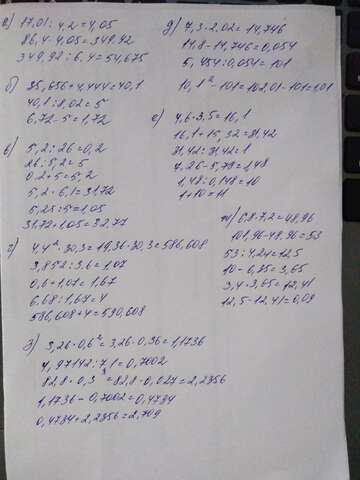 а) 17,01 : 4,2 = 4,05
86,4 · 4,05 = 349,92
349,92 : 6,4 = 54,675
б) 35,656 + 4,444 = 40,1
40,1 : 8,02 = 5
6,72 - 5 = 1,72
в) 5,2 : 26 = 0,2
26 : 5,2 = 5
0,2 + 5 = 5,2
5,2 · 6,1 = 31,72
5,25 : 5 = 1,05
31,72 + 1,05 = 32,77
г) 4,4² · 30,3 = 19,36 · 30,3 = 586,608
3,852 : 3,6 = 1,07
0,6 + 1,07 = 1,67
6,68 : 1,67 = 4
586,608 + 4 = 590,608
д) 7,3 · 2,02 = 14,746
14,8 - 14,746 = 0,054
5,454 : 0,054 = 101
10,1² - 101 = 102,01 - 101 = 1,01
е) 4,6 · 3,5 = 16,1
16,1 + 15,32 = 31,42
31,42 : 31,42 = 1
7,26 - 5,78 = 1,48
1,48 : 0,148 = 10
1 + 10 = 11
ж) 6,8 · 7,2 = 48,96
101,96 - 48,96 = 53
53 : 4,24 = 12,5
10 - 6,35 = 3,65
3,4 · 3,65 = 12,41
12,5 - 12,41 = 0,09
з) 3,26 · 0,6² = 3,26 · 0,36 = 1,1736
4,97142 : 7,1 = 0,7002
82,8 · 0,3³ = 82,8 · 0,027 = 2,2356
1,1736 - 0,7002 = 0,4734
0,4734 + 2,2356 = 2,709